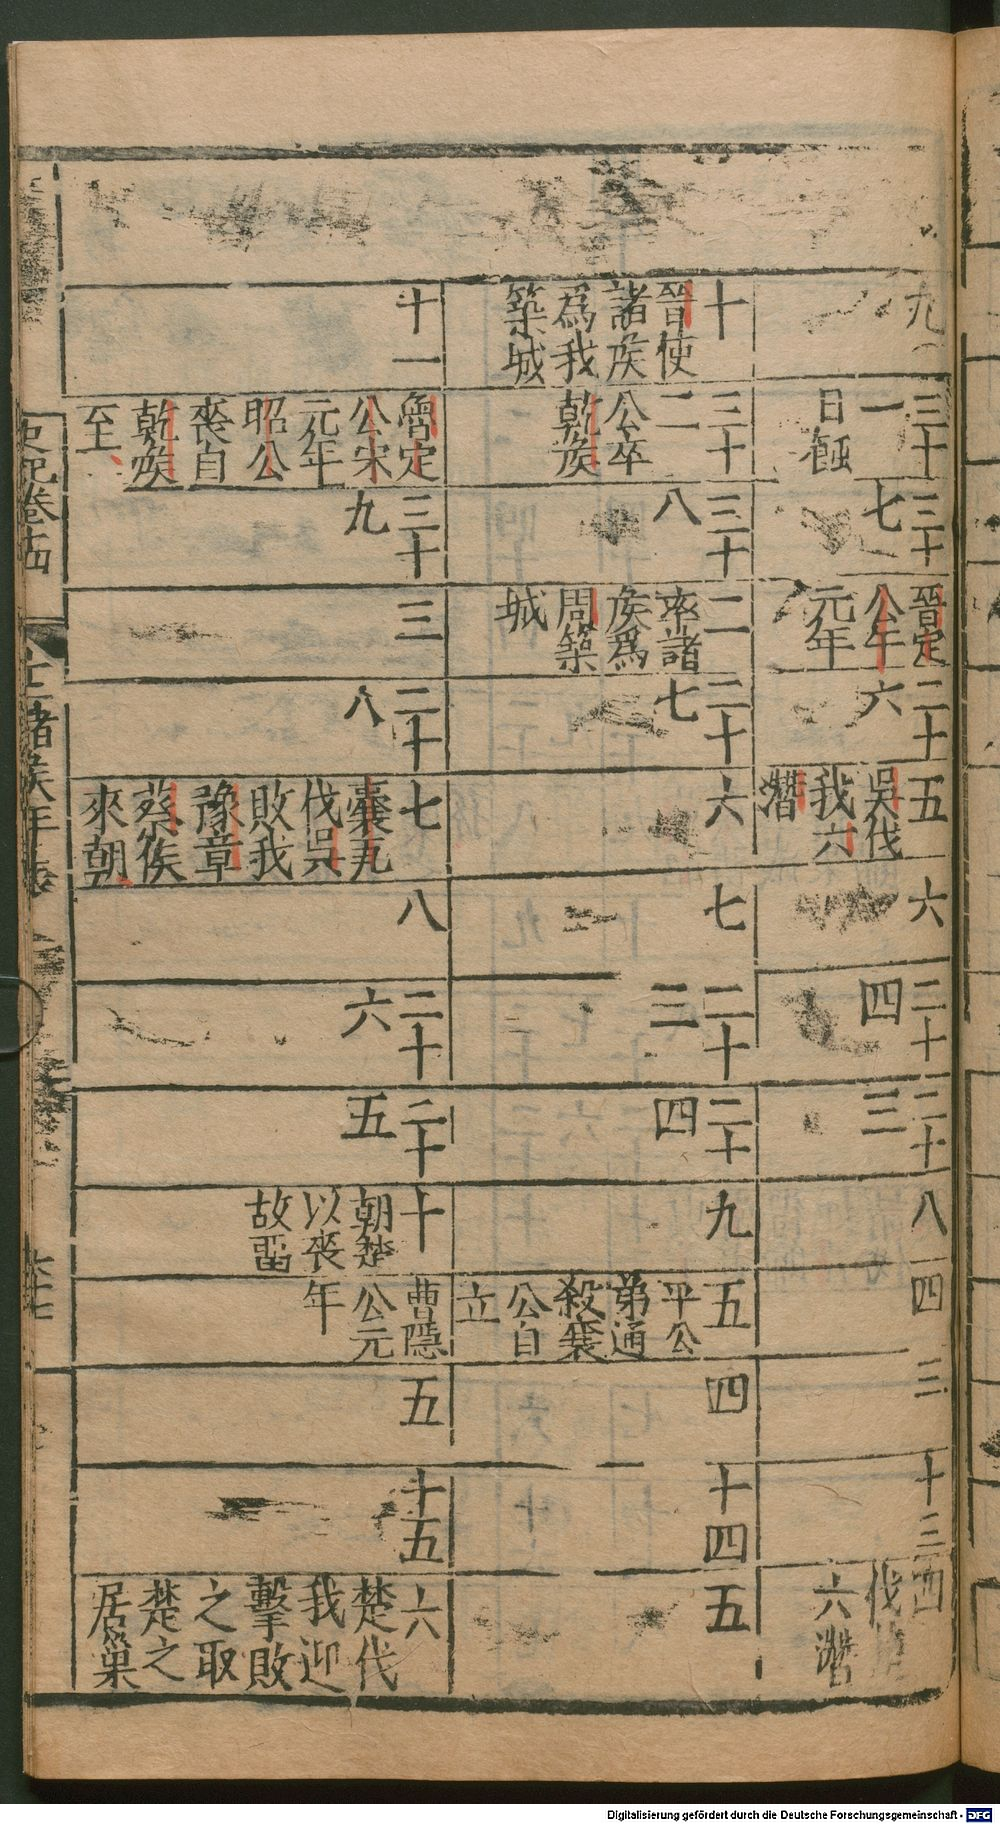 九
三十一 日蝕
三十七
晉定公午元年
二十六
五 吳伐我六潛
六
二十四
二十三
八
四
三
十三
四 伐 六潛
十 晉使諸矦爲我築城
三十二 公卒乾矦
三十八
二 率諸矦爲周築城
二十七
六
七
二十三
二十四
九
五 平公弟通殺襄公自立
四
十四
五
十一
魯定公宋元年 昭公喪自乾矦至
三十九
三
二十八
七 囊瓦伐吳敗我豫章 蔡侯來朝
八
二十六
二十五
十 朝楚以喪故畱
曹隱公元年
五
十五
六 楚伐我迎擊敗之取楚之居巢
史記卷十四
十二諸侯年表
Digitalisierung gefördert durch die Deutsche Forschungsgemeinschaft - DFG